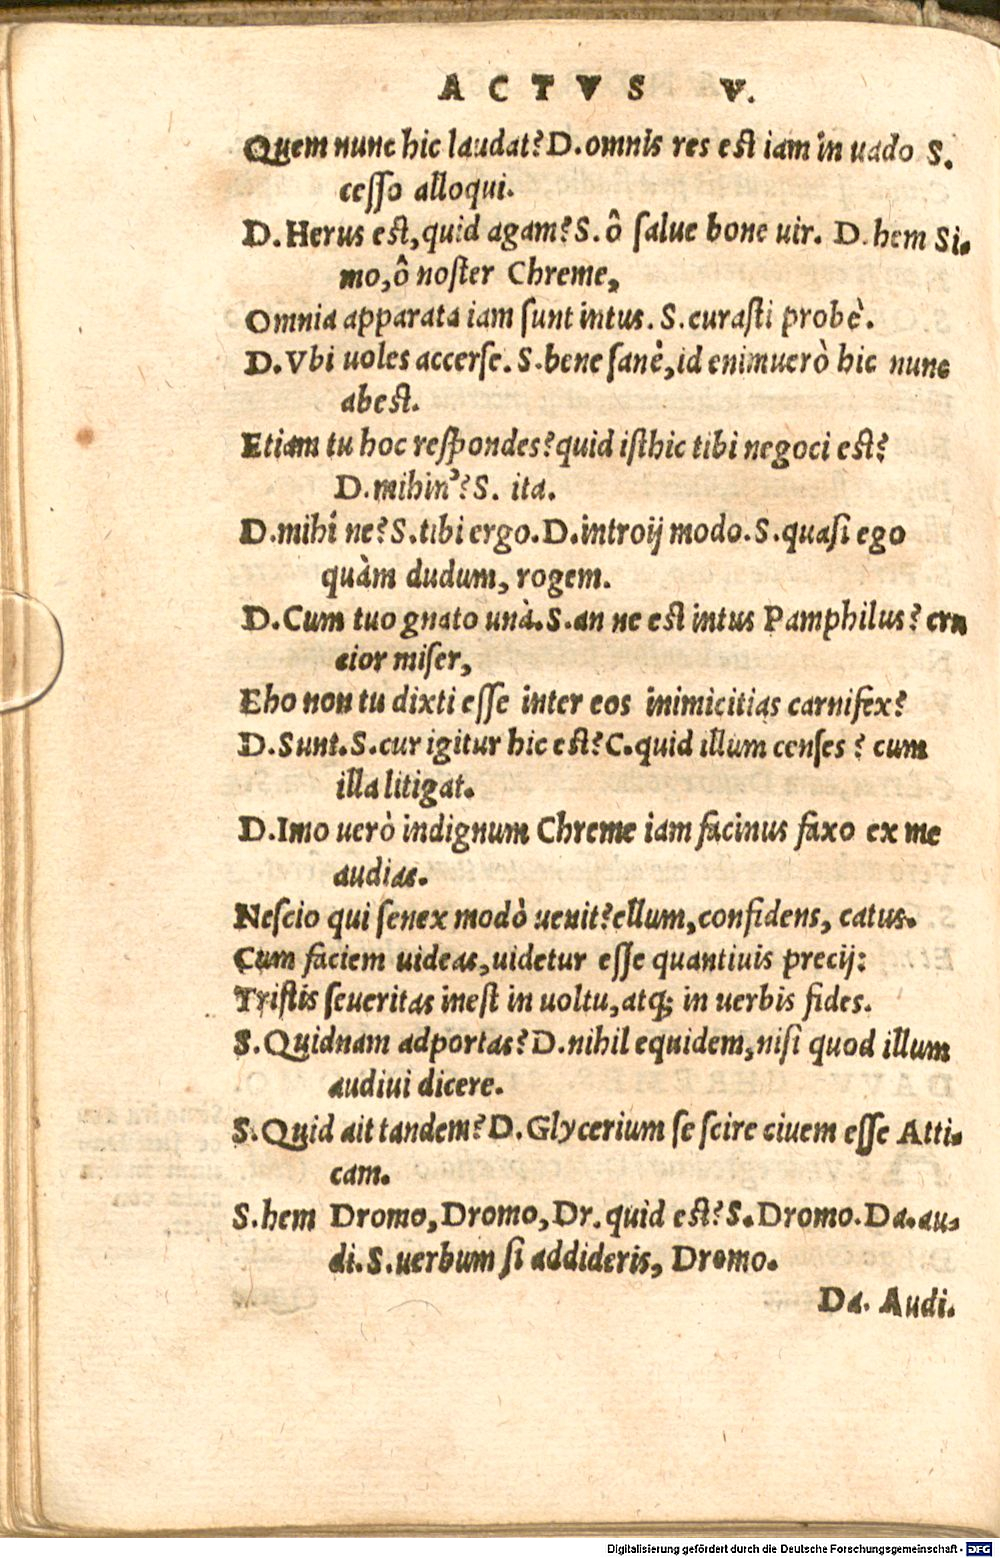 ACTVS V.
Quem nunc hic laudat? D. omnis res est iam in uado S.
cesso alloqui.
D. Herus est, quid agam? S. ô salue bone uir. D. hem Si-
mo, ô noster Chreme,
Omnia apparata iam sunt intus. S. curasti probè.
D. Vbi uoles accerse. S. bene sanè, id enimuerò hic nunc
abest.
Etiam tu hoc respondes? quid isthic tibi negoci est?
D. mihin'? S. ita.
D. mihi ne? S. tibi ergo. D. introij modo. S. quasi ego
quàm dudum, rogem.
D. Cum tuo gnato unà. S. an ne est intus Pamphilus? cru
cior miser,
Eho non tu dixti esse inter eos inimicitias carnifex?
D. Sunt. S. cur igitur hic est? C. quid illum censes? cum
illa litigat.
D. Imo uerò indignum Chreme iam facinus faxo ex me
audias.
Nescio qui senex modò uenit? ellum, confidens, catus.
Cum faciem uideas, uidetur esse quantiuis precij:
Tristis seueritas inest in uoltu, atq; in uerbis fides.
S. Quidnam adportas? D. nihil equidem, nisi quod illum
audiui dicere.
S. Quid ait tandem? D. Glycerium se scire ciuem esse Atti-
cam.
S. hem Dromo, Dromo, Dr. quid est? S. Dromo. Da. au-
di. S. uerbum si addideris, Dromo.
Da. Audi.
Digitalisierung gefördert durch die Deutsche Forschungsgemeinschaft - DFG